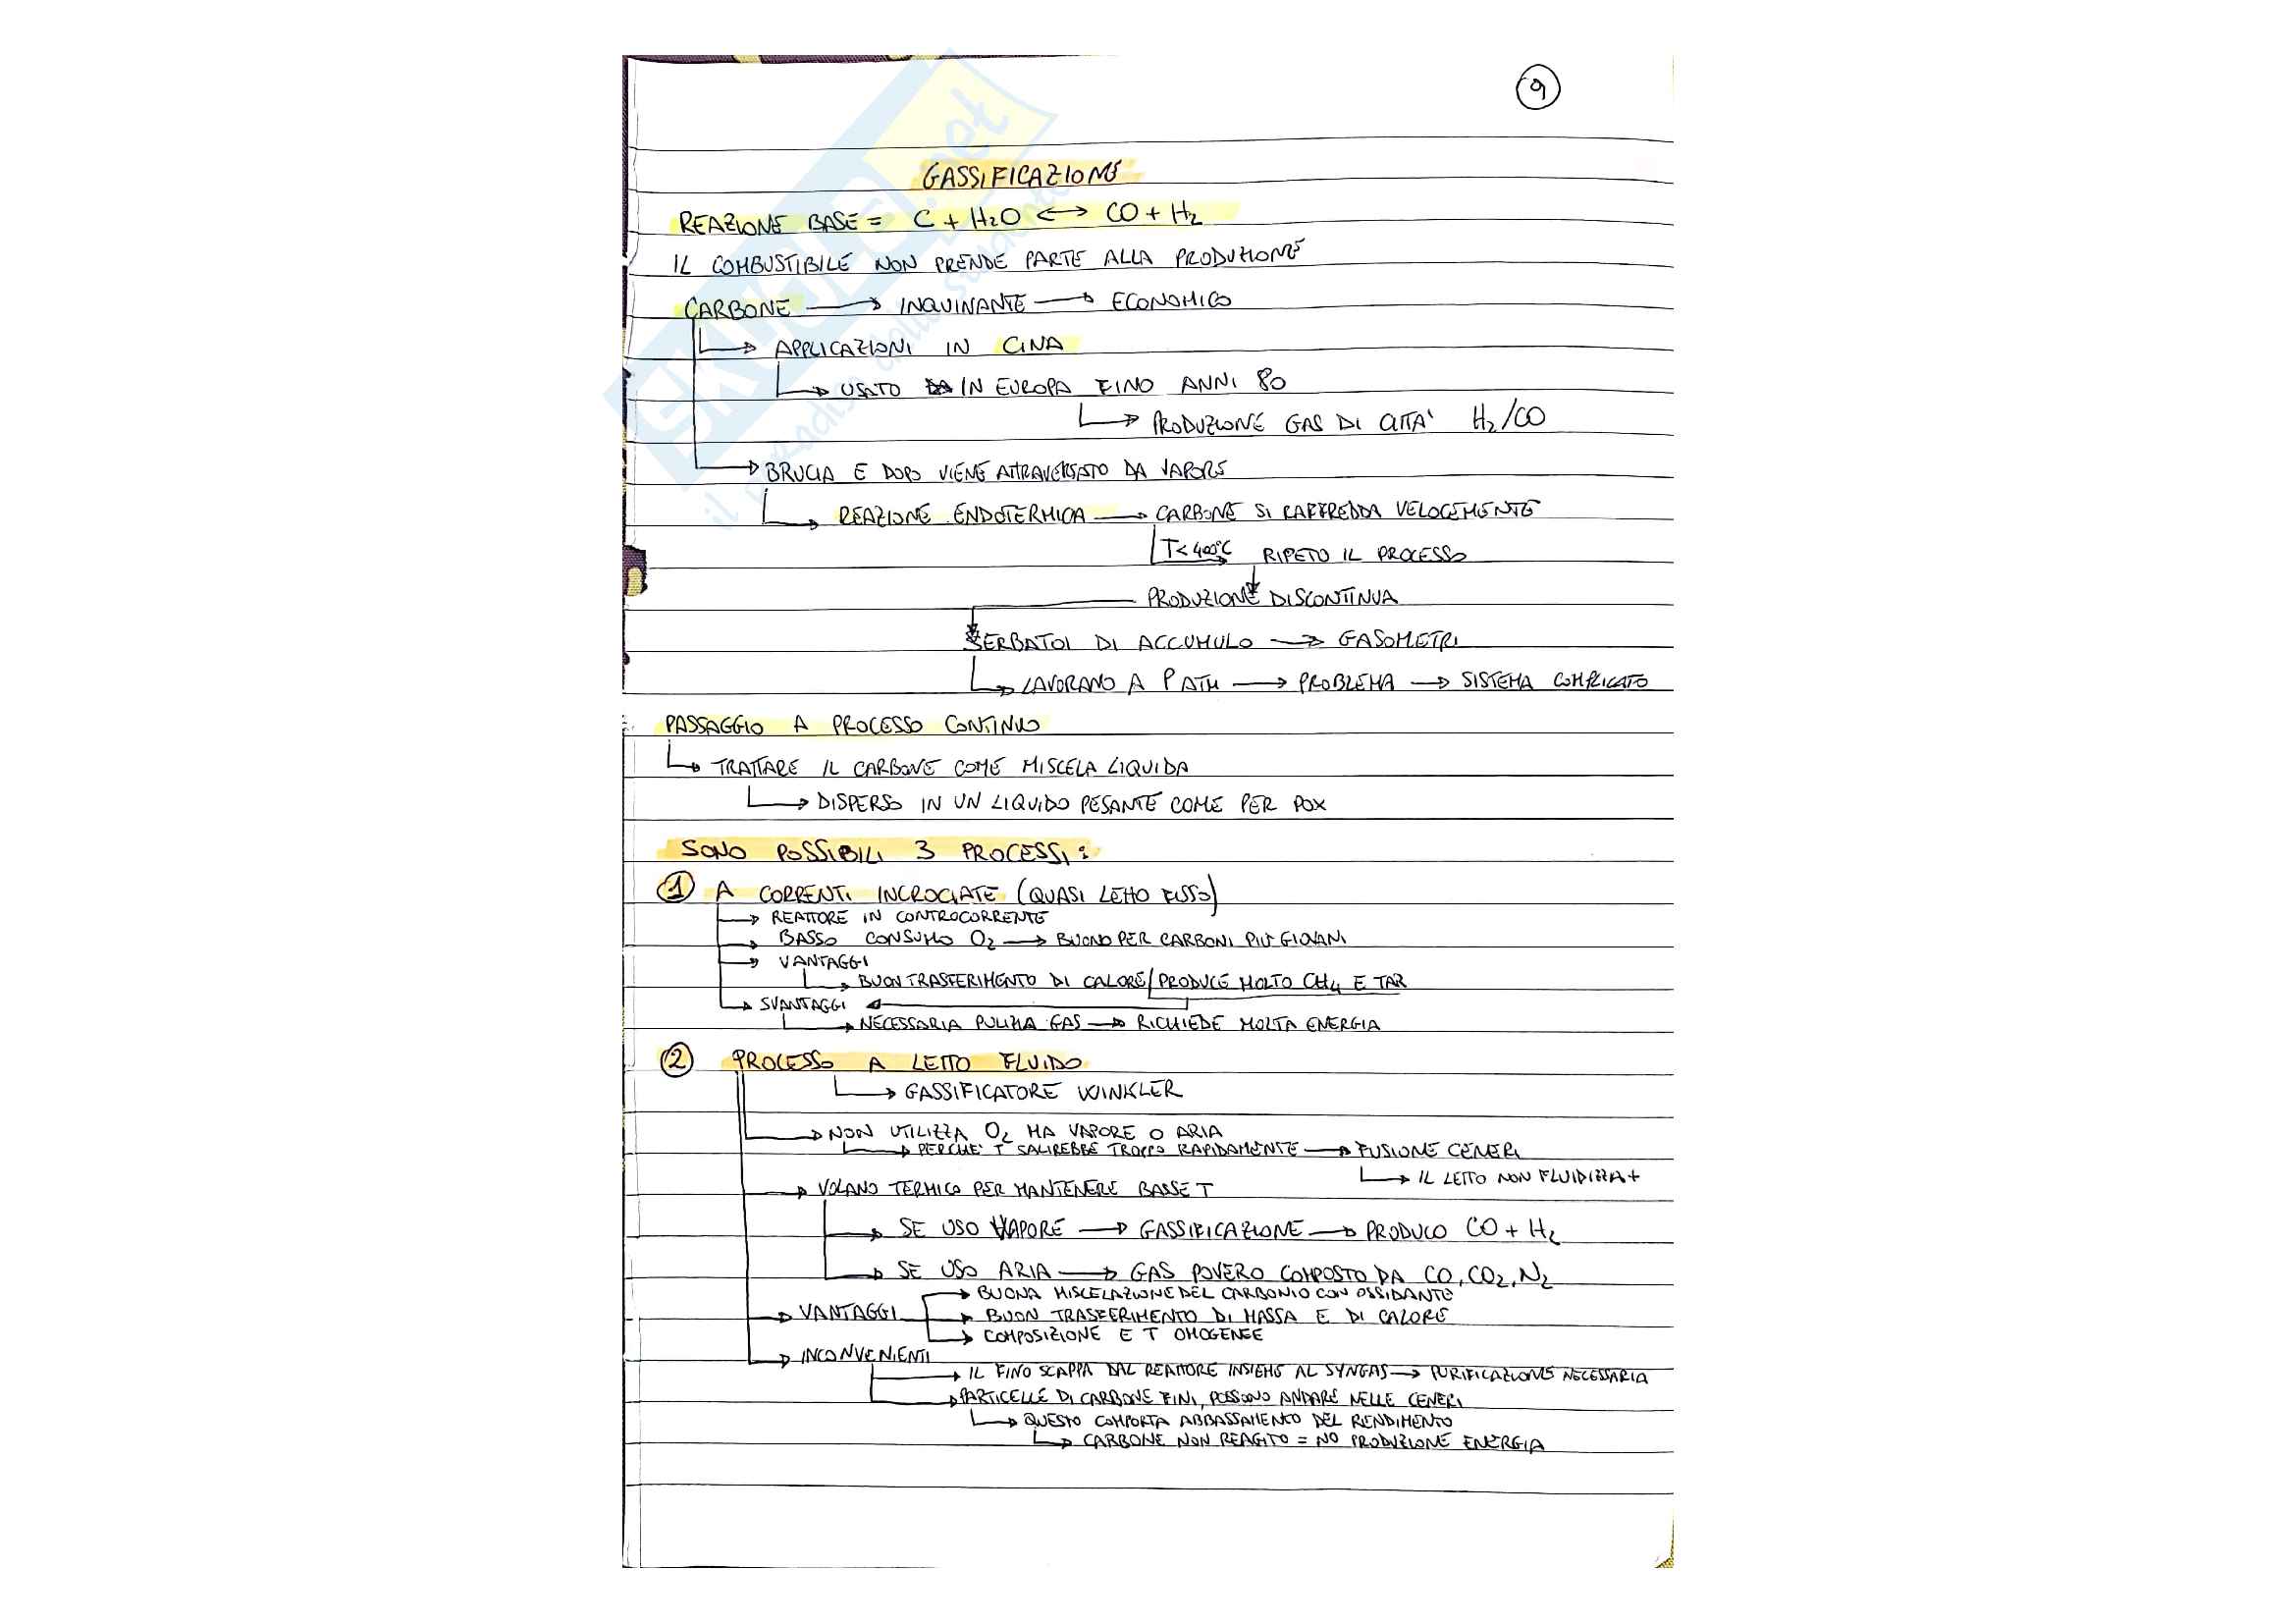 9
GASSIFICAZIONE
REAZIONE BASE = C + H2O <-> CO + H2
IL COMBUSTIBILE NON PRENDE PARTE ALLA PRODUZIONE
CARBONE → INQUINANTE → ECONOMICO
→ APPLICAZIONI IN CINA
→ USATO IN EUROPA FINO ANNI 80
→ PRODUZIONE GAS DI CITTA' H2/CO
→ BRUCIA E DOPO VIENE ATTRAVERSATO DA VAPORE
→ REAZIONE ENDOTERMICA → CARBONE SI RAFFREDDA VELOCEMENTE
T<400°C → RIPETO IL PROCESSO
PRODUZIONE DISCONTINUA
SERBATOI DI ACCUMULO → GASOMETRI
→ LAVORANO A P ATM → PROBLEMA → SISTEMA COMPLICATO
PASSAGGIO A PROCESSO CONTINUO
→ TRATTARE IL CARBONE COME MISCELA LIQUIDA
→ DISPERSO IN UN LIQUIDO PESANTE COME PER POX
SONO POSSIBILI 3 PROCESSI:
1 A CORRENTI INCROCIATE (QUASI LETTO FISSO)
→ REATTORE IN CONTROCORRENTE
→ BASSO CONSUMO O2 → BUONO PER CARBONI PIU' GIOVANI
→ VANTAGGI
→ BUON TRASFERIMENTO DI CALORE/PRODUCE MOLTO CH4 E TAR
→ SVANTAGGI ←
→ NECESSARIA PULIZIA GAS → RICHIEDE MOLTA ENERGIA
2 PROCESSO A LETTO FLUIDO
→ GASSIFICATORE WINKLER
→ NON UTILIZZA O2 MA VAPORE O ARIA
→ PERCHE' T SALIREBBE TROPPO RAPIDAMENTE → FUSIONE CENERI
→ IL LETTO NON FLUIDIZZA +
→ VOLANO TERMICO PER MANTENERE BASSE T
→ SE USO VAPORE → GASSIFICAZIONE → PRODUCO CO + H2
→ SE USO ARIA → GAS POVERO COMPOSTO DA CO, CO2, N2
→ BUONA MISCELAZIONE DEL CARBONIO CON OSSIDANTE
→ VANTAGGI → BUON TRASFERIMENTO DI MASSA E DI CALORE
→ COMPOSIZIONE E T OMOGENEE
→ INCONVENIENTI
→ IL FINO SCAPPA DAL REATTORE INSIEME AL SYNGAS → PURIFICAZIONE NECESSARIA
→ PARTICELLE DI CARBONE FINI, POSSONO ANDARE NELLE CENERI
→ QUESTO COMPORTA ABBASSAMENTO DEL RENDIMENTO
→ CARBONE NON REAGITO = NO PRODUZIONE ENERGIA